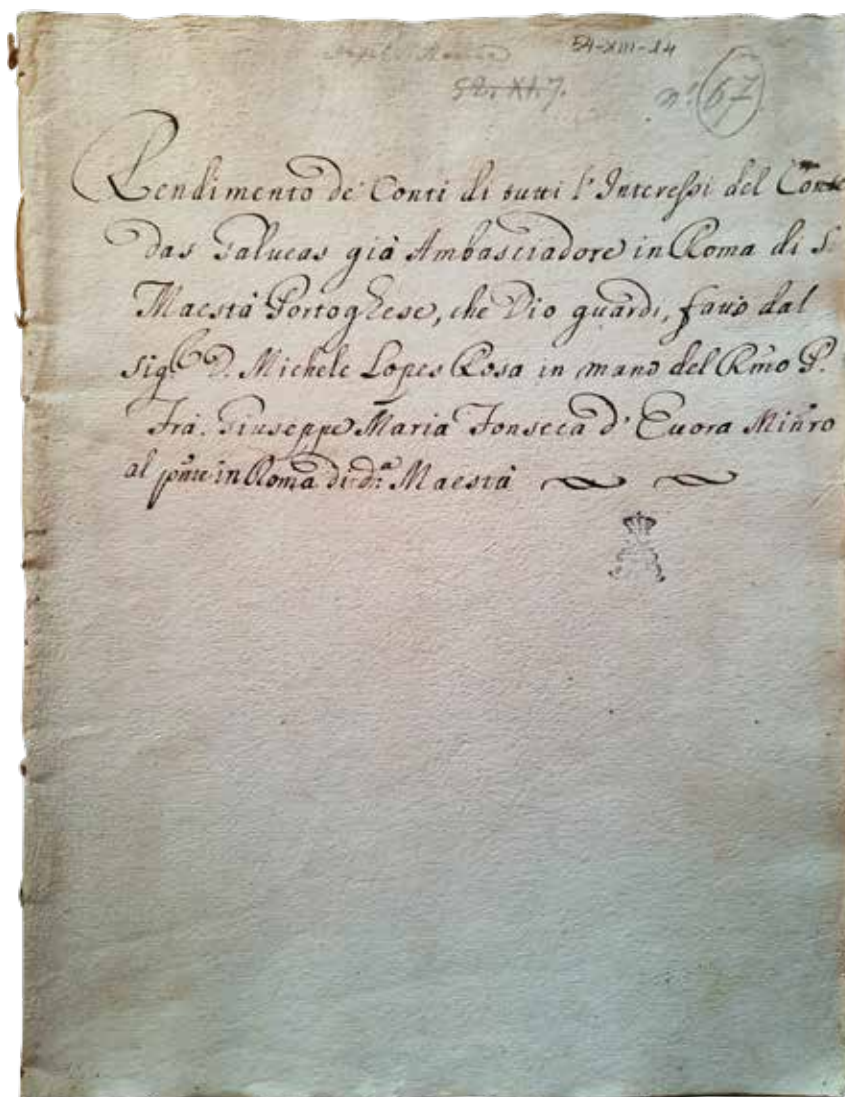 54-XIII-14
52. XI. 7.
nº 67
Rendimento de' Conti di tutti l'Interessi del Conte
das Galueas già Ambasciadore in Roma di S.
Maestà Portoghese, che Dio guardi, fatto dal
Sig.r D. Michele Lopes Rosa in mano del Rmo P.
Frà. Giuseppe Maria Fonseca d' Euora Minro
al pnte in Roma di d.a Maestà